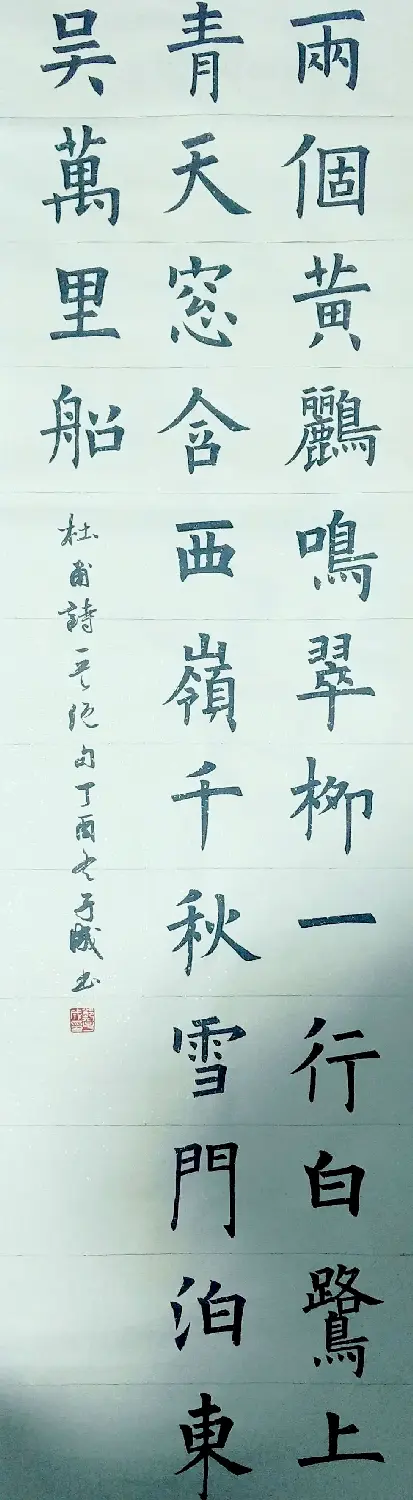 兩個黃鸝鳴翠柳一行白鷺上
青天窓含西嶺千秋雪門泊東
吴萬里船
杜甫詩一首絕句丁酉冬子成书